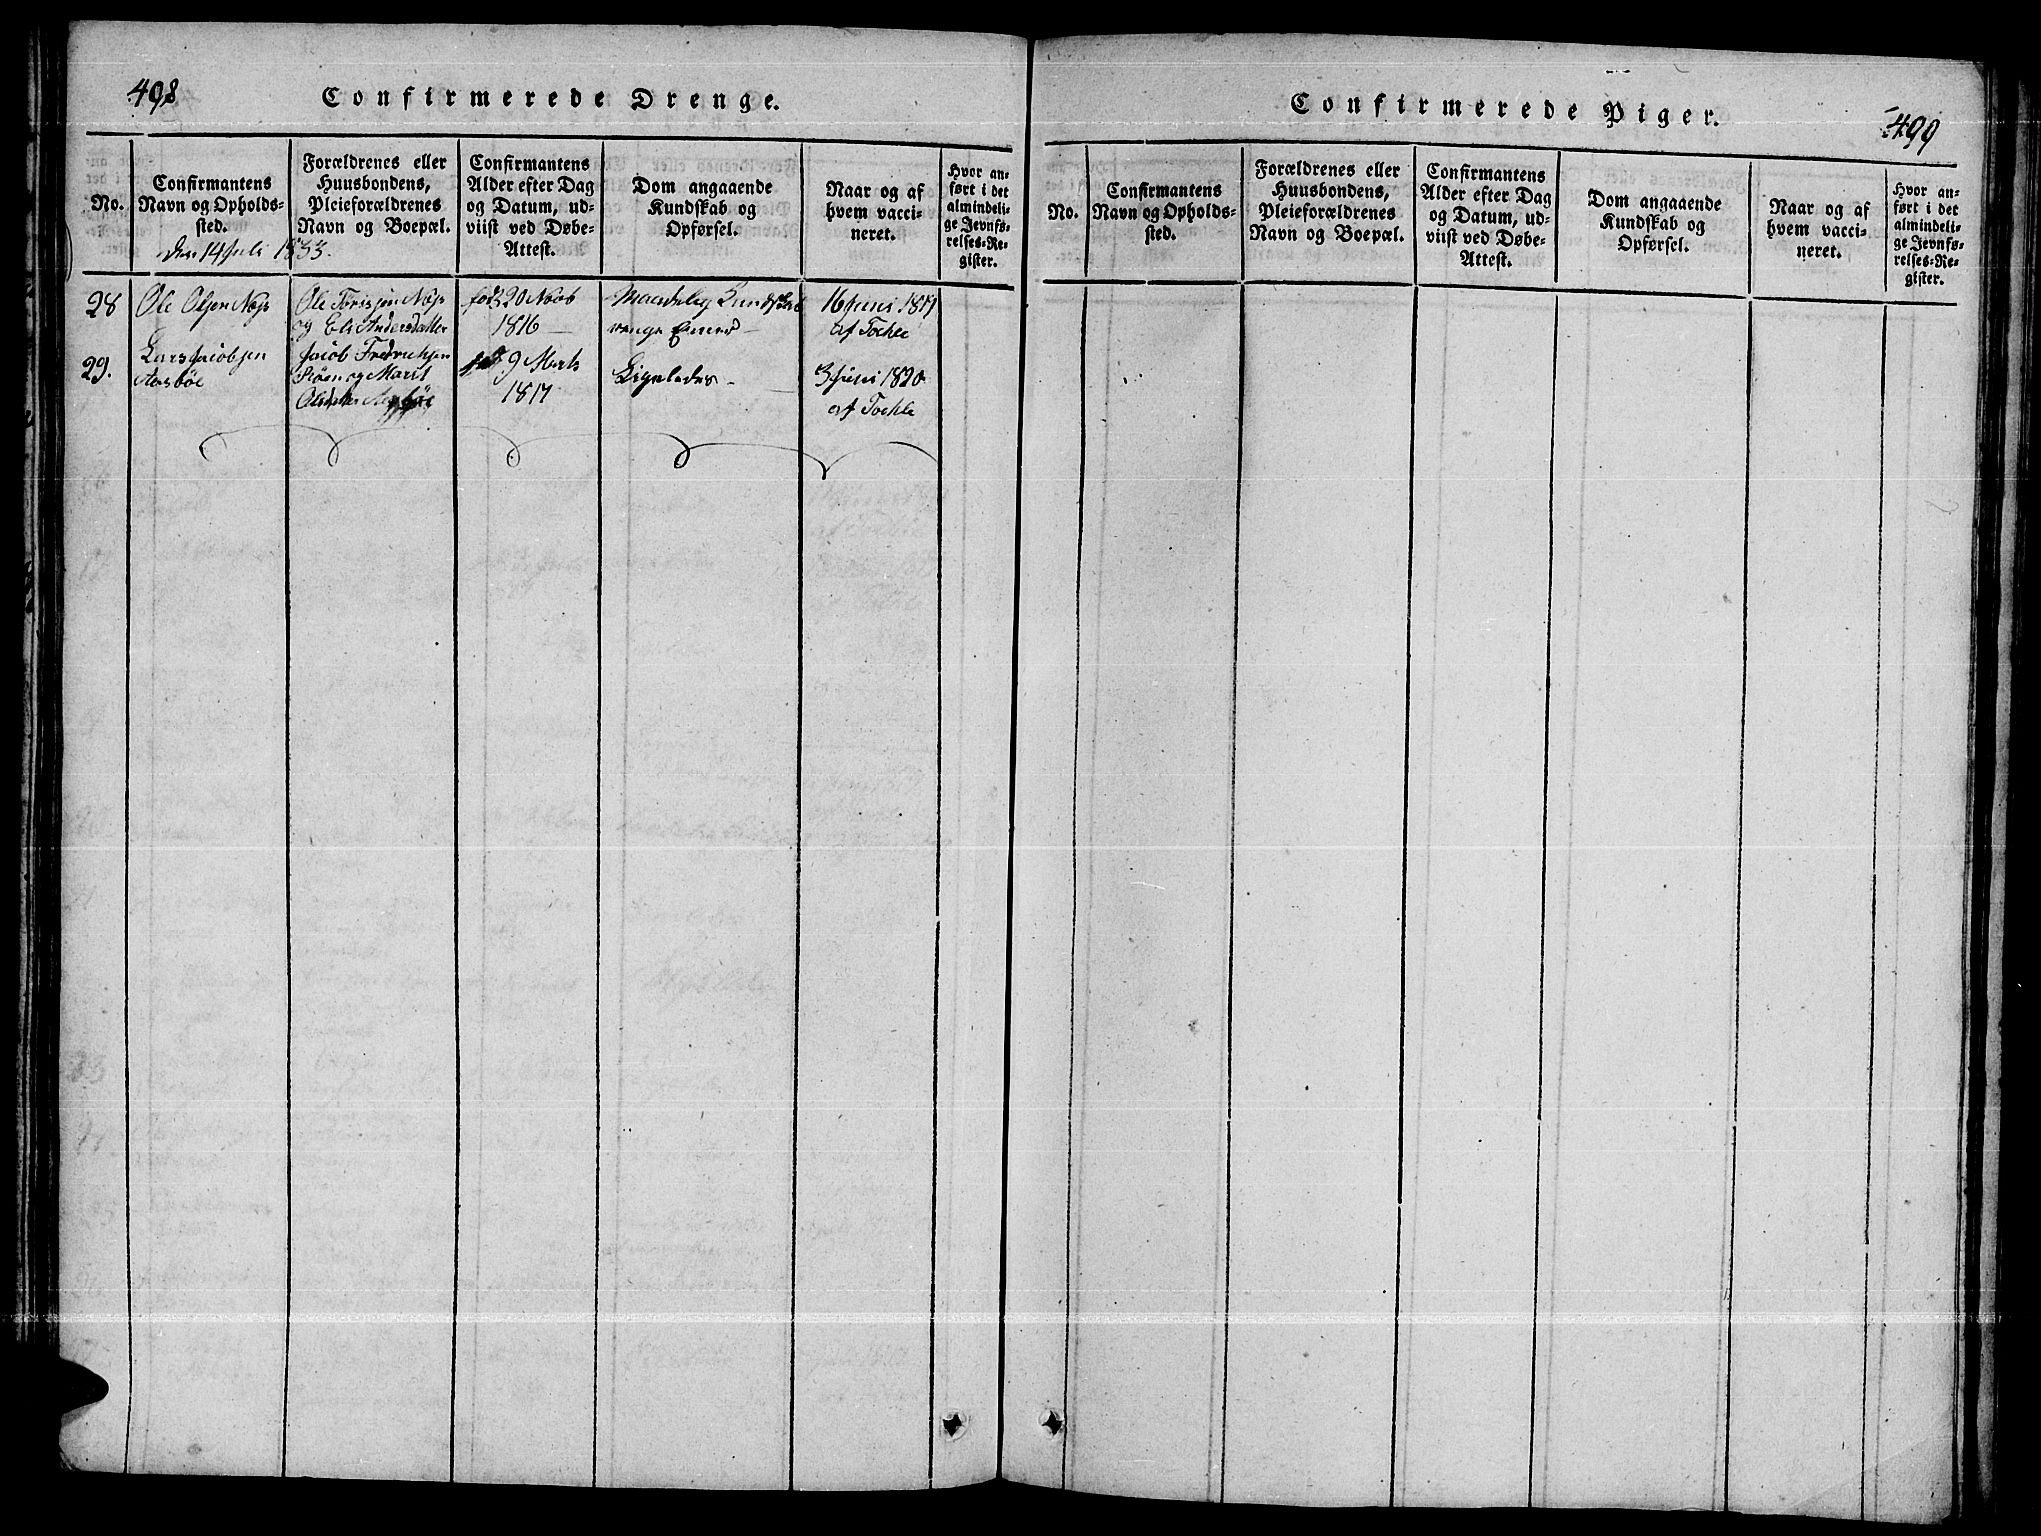 498
Confirmerede Drenge.
No.
Confirmantens
Navn og Opholds-
sted.
Forældrenes eller
Huusbondens,
Pleieforældrenes
Navn og Boepæl.
Confirmantens
Alder efter Dag
og Datum, ud-
viist ved Døbe-
Attest.
Dom angaaende
Kundskab og
Opførsel.
Naar og af
hvem vacci-
neret.
Hvor an-
ført i det
almindeli-
ge Jevnfø-
relses-Re-
gister.
den 14 Juli 1833.
28
Ole Olsen
Ole
og Eli Andersdatter
fød 20 Novb
1816
Maadelig Kundskab
16 Juni 1817
af Tochle
29.
Lars Jacobsen
Aasbøe
Jacob Fredrichsen
og Marit
9 Marts
1817
Ligeledes
3 Juni 1820
af Tochle
Confirmerede Piger.
499
No.
Confirmantens
Navn og Opholds-
sted.
Forældrenes eller
Huusbondens,
Pleieforældrenes
Navn og Boepæl.
Confirmantens
Alder efter Dag
og Datum, ud-
viist ved Døbe-
Attest.
Dom angaaende
Kundskab og
Opførsel.
Naar og af
hvem vacci-
neret.
Hvor an-
ført i det
almindeli-
ge Jevnfø-
relses-Re-
gister.